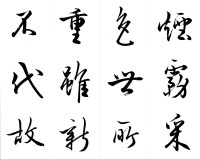 煙霧采
色世所
重雖新
不代故